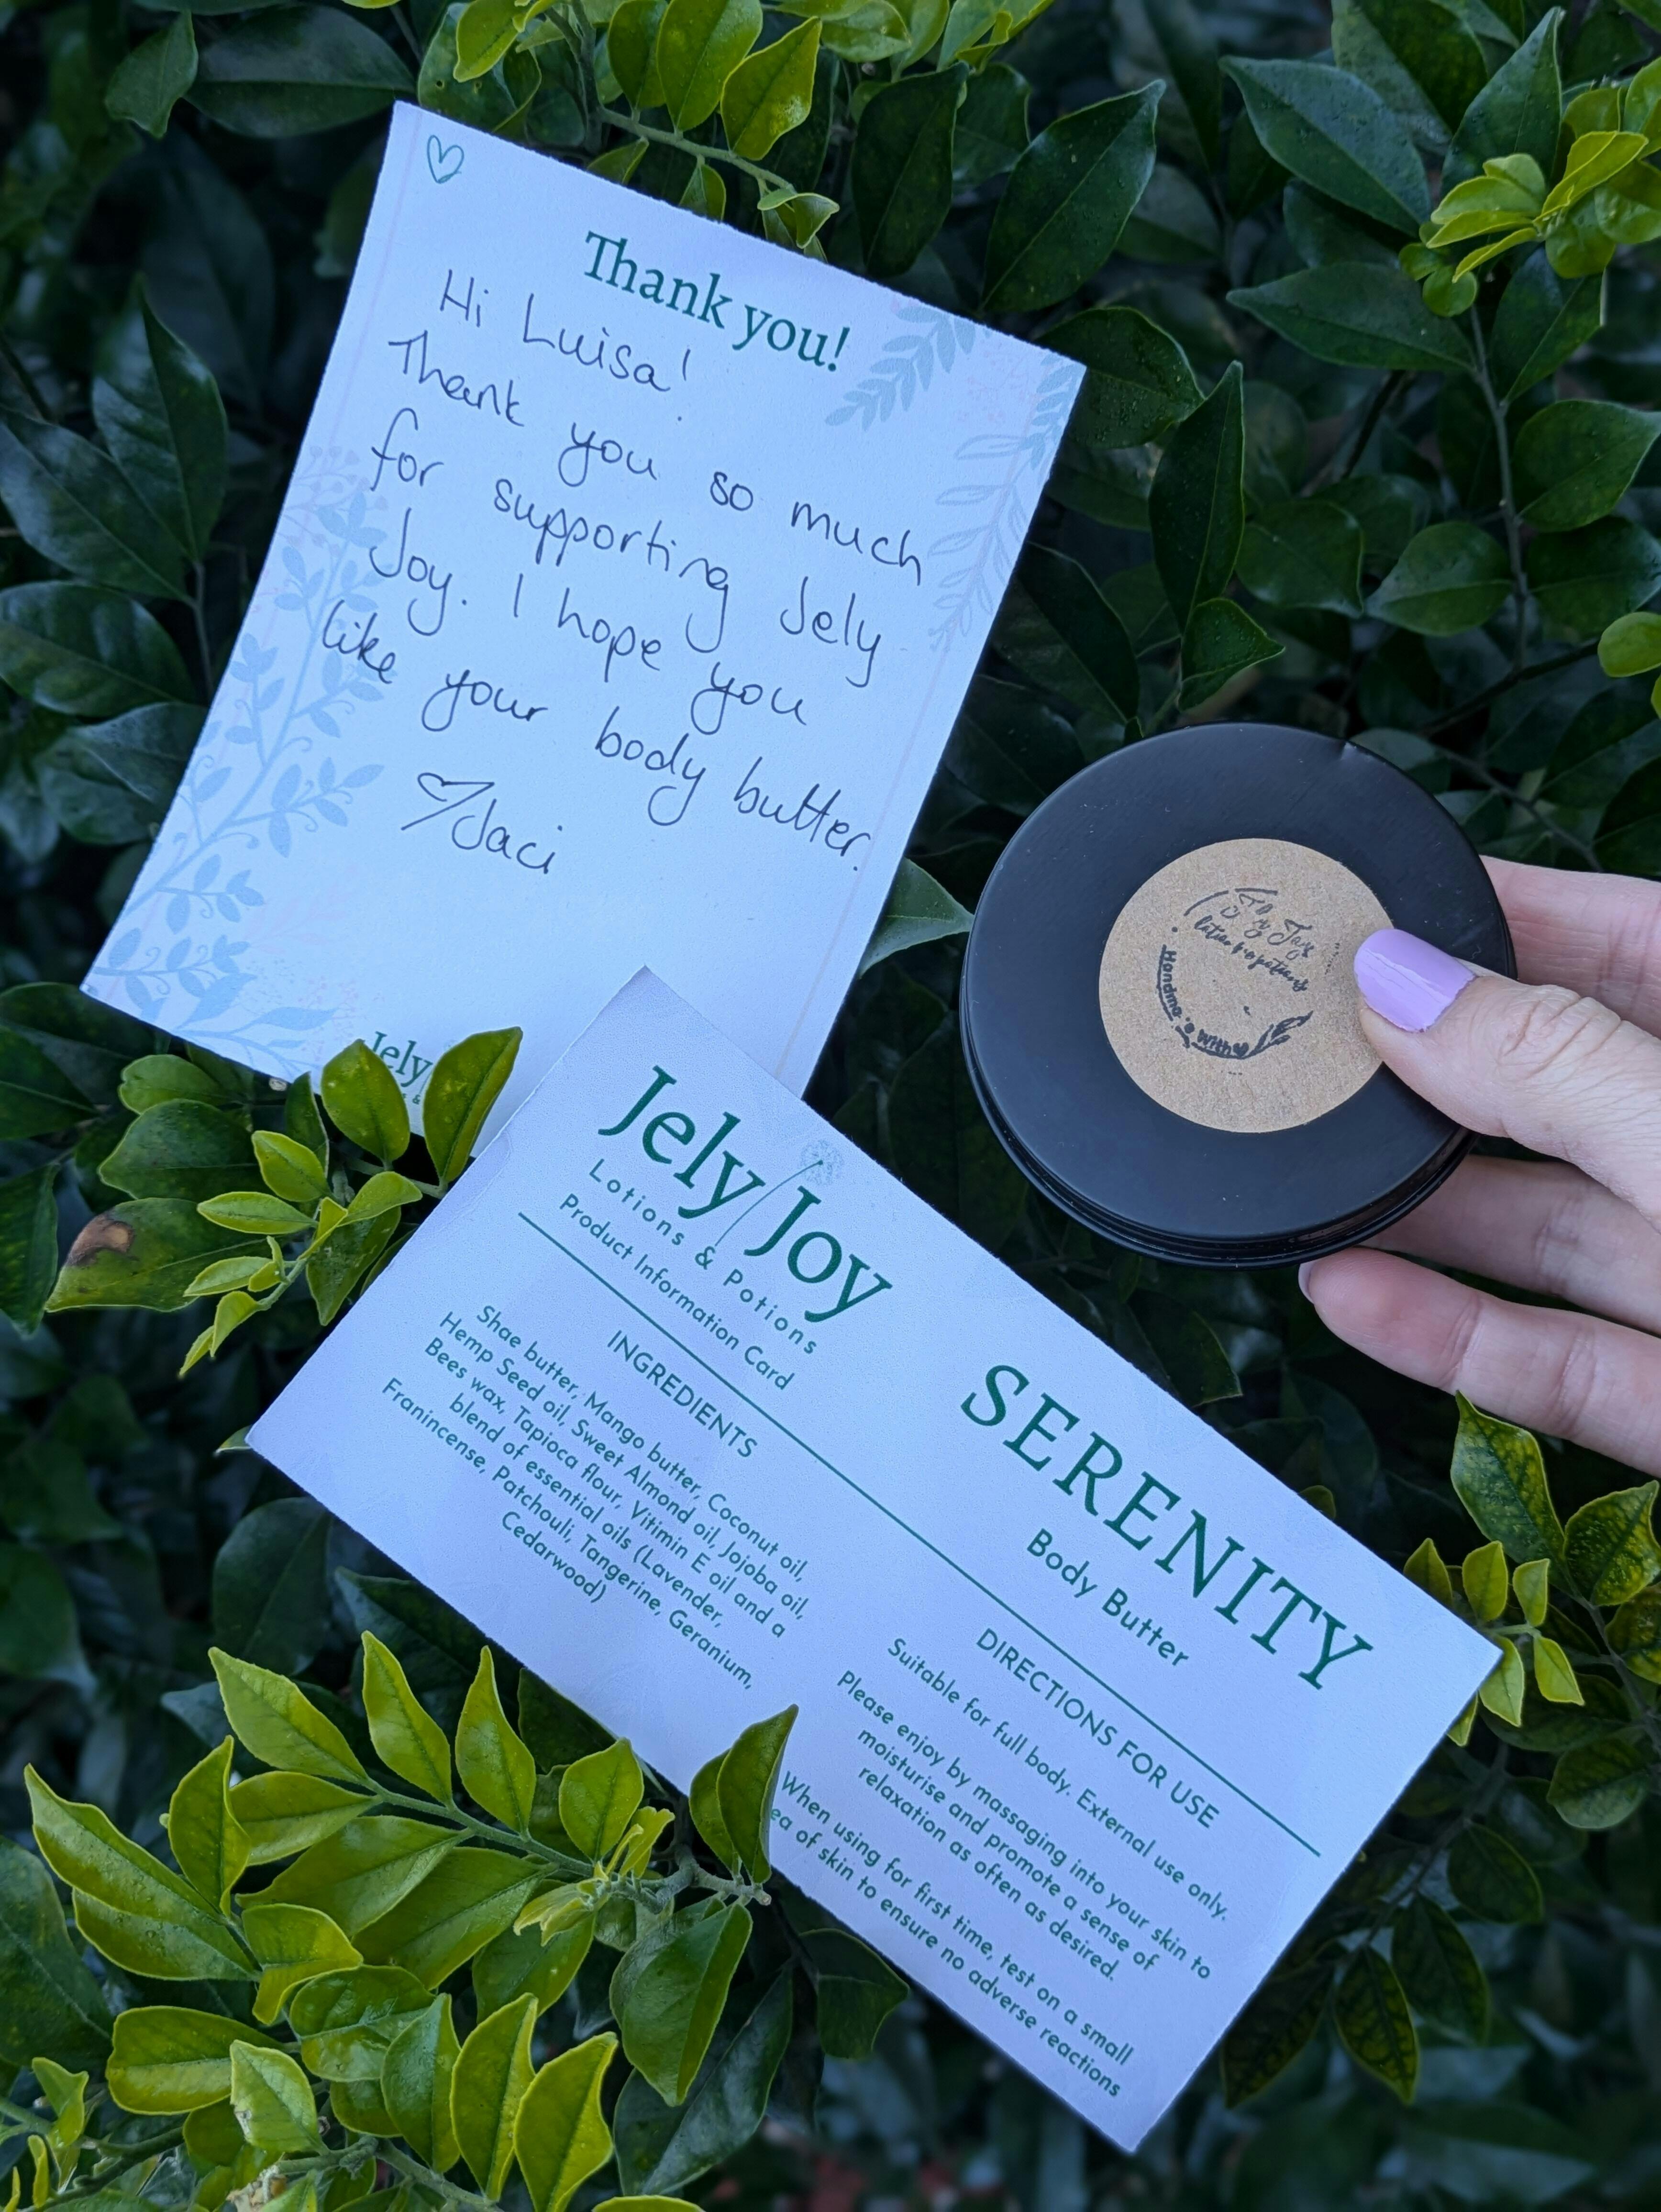 Thank you!
Hi Luisa!
Thank you so much
for supporting Jely
Joy. I hope you
like your body butter.
Jaci
Jely
&
Jely Joy
Lotions & Potions
Product Information Card
INGREDIENTS
Shae butter, Mango butter, Coconut oil,
Hemp Seed oil, Sweet Almond oil, Jojoba oil,
Bees wax, Tapioca flour, Vitimin E oil and a
blend of essential oils (Lavender,
Franincense, Patchouli, Tangerine, Geranium,
Cedarwood)
SERENITY
Body Butter
DIRECTIONS FOR USE
Suitable for full body. External use only.
Please enjoy by massaging into your skin to
moisturise and promote a sense of
relaxation as often as desired.
When using for first time, test on a small
of skin to ensure no adverse reactions
Joy
lotions & potions
With